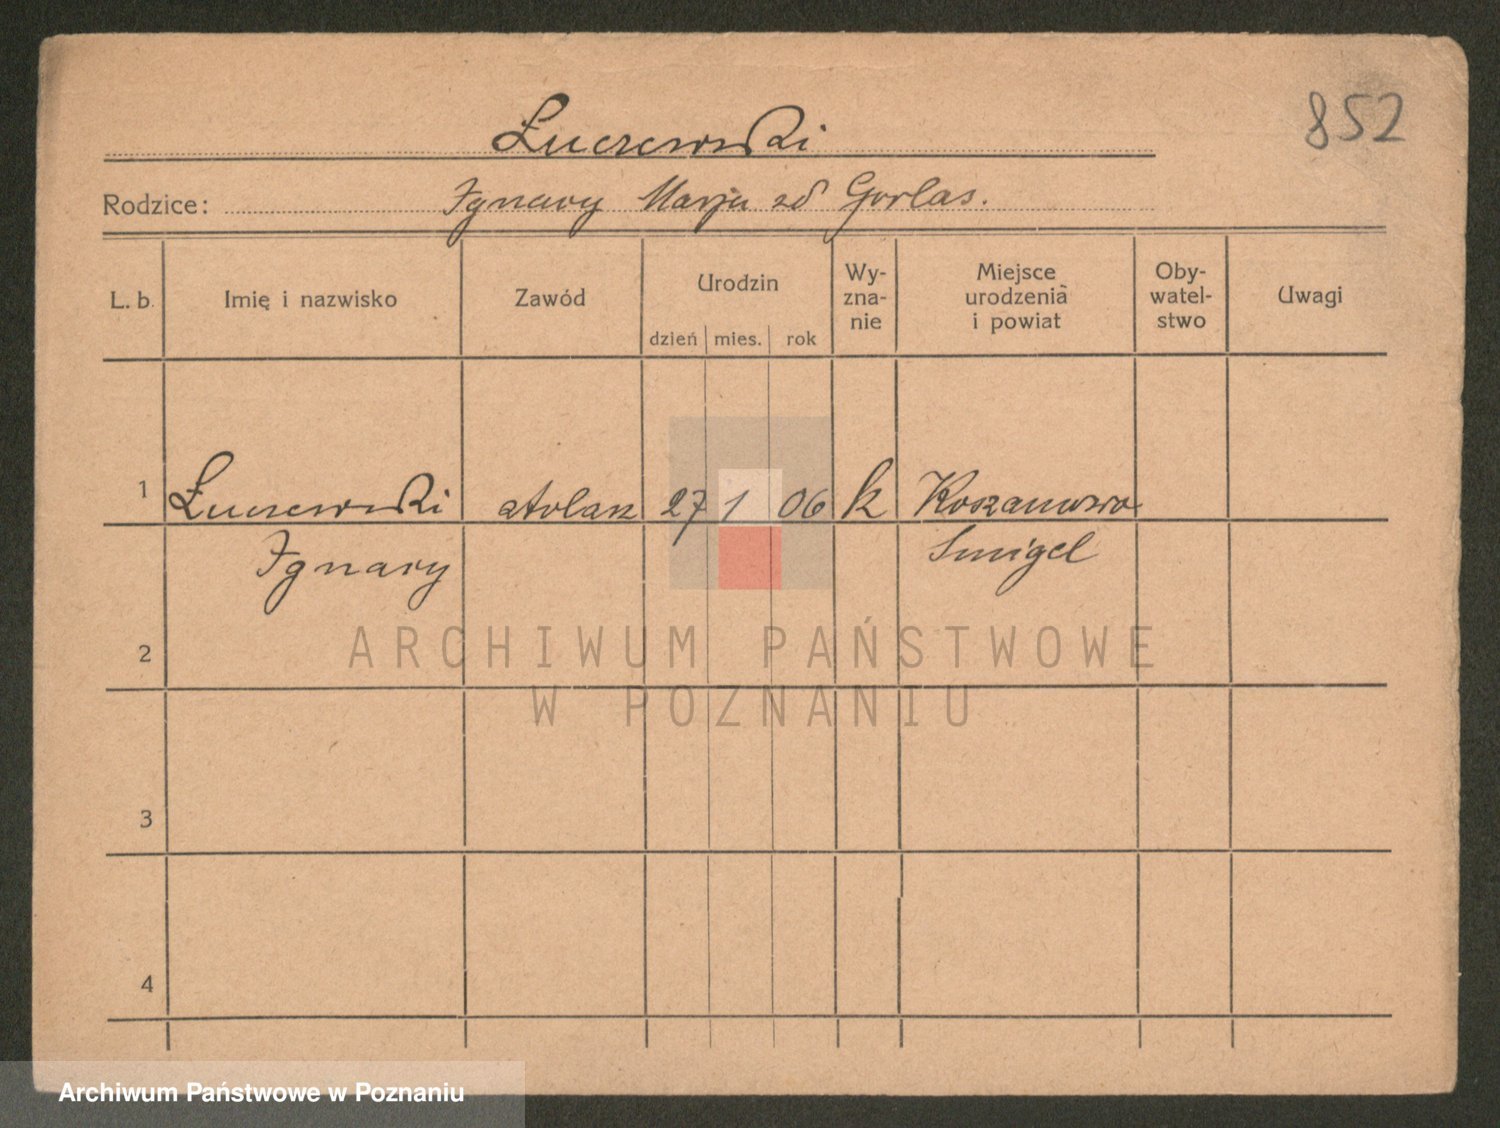 852
Łuczewski
Rodzice: Ignacy Marja zd Gorlas.
L. b. Imię i nazwisko Zawód Urodzin Wy-zna-nie Miejsce urodzenia i powiat Oby-watel-stwo Uwagi
dzień mies. rok
1 Łuczewski stolarz 27 1 06 k Koszanowo
Ignacy Smigel
2
ARCHIWUM PAŃSTWOWE
W POZNANIU
3
4
Archiwum Państwowe w Poznaniu